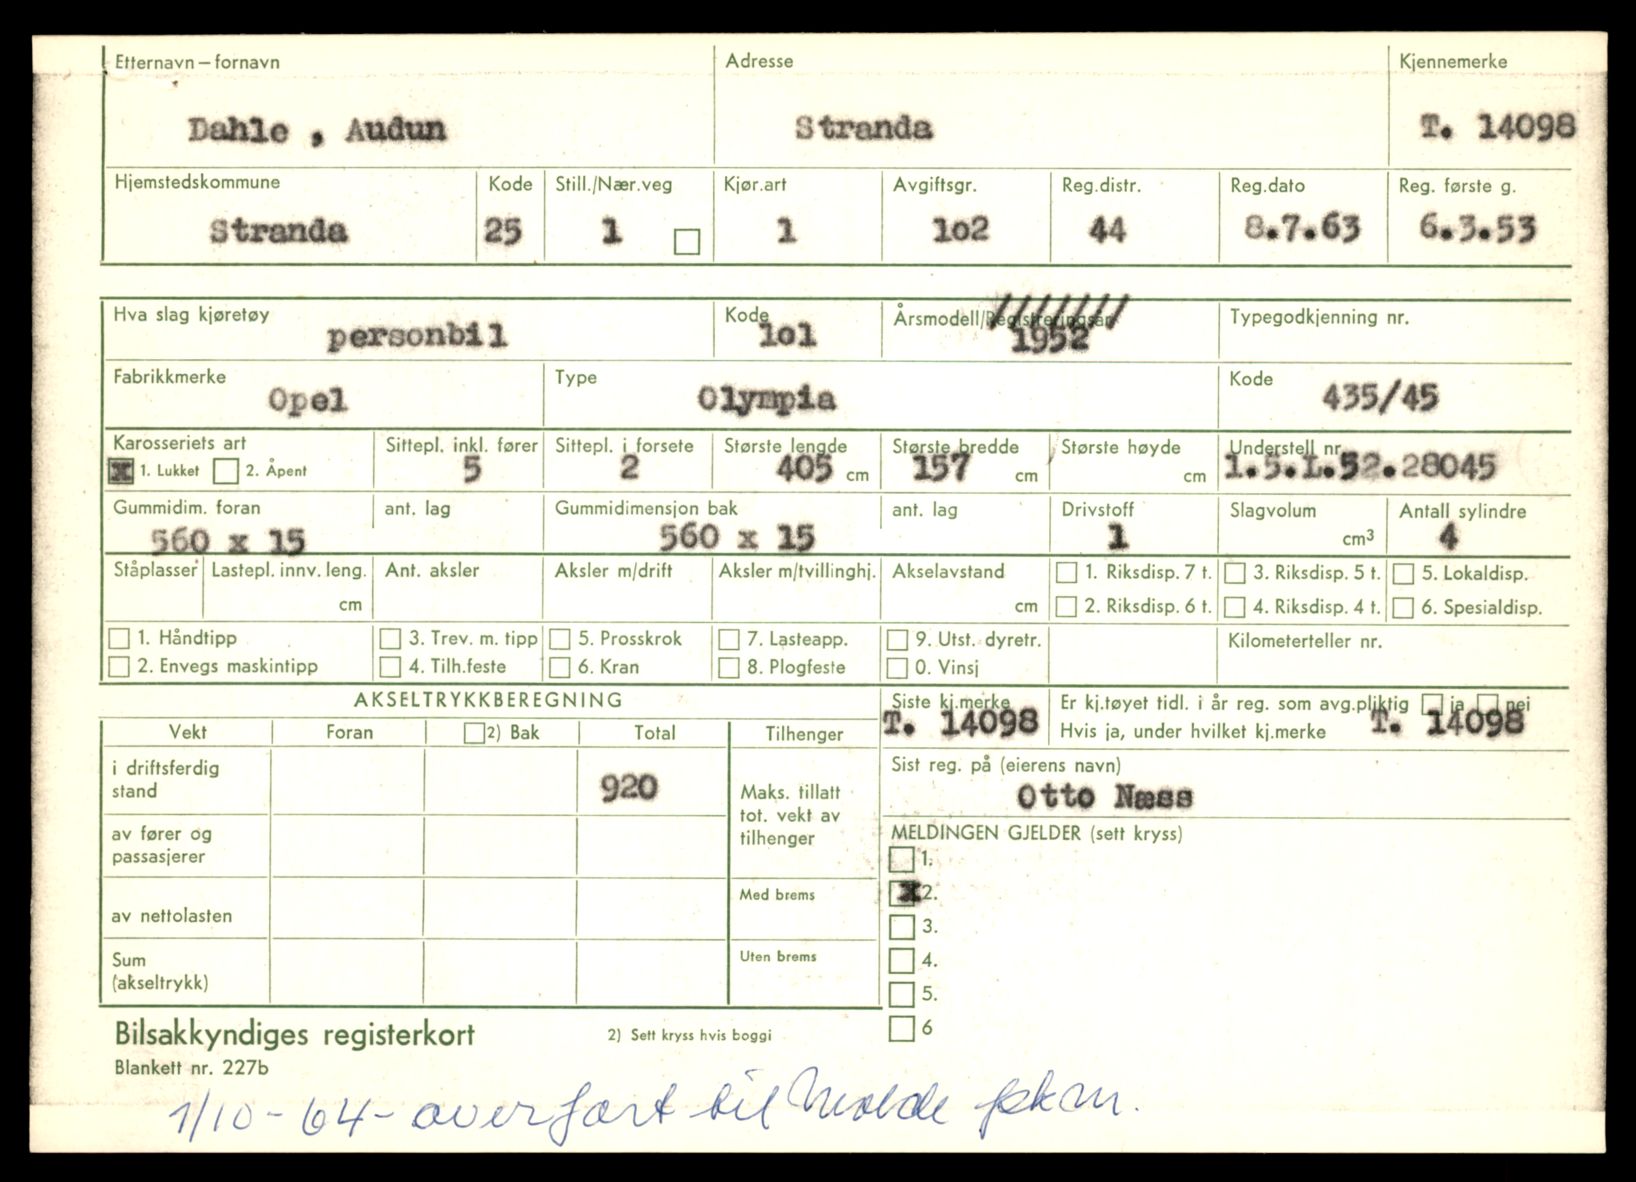 Etternavn – fornavn Adresse Kjennemerke
Dahle , Audun Stranda T. 14098
Hjemstedskommune Kode Still./Nær.veg Kjør.art Avgiftsgr. Reg.distr. Reg.dato Reg. første g.
Stranda 25 1 1 1o2 44 8.7.63 6.3.53
Hva slag kjøretøy Kode Årsmodell/Registreringsår Typegodkjenning nr.
personbil 1o1 1952
Fabrikkmerke Type Kode
Opel Olympia 435/45
Karosseriets art Sittepl. inkl. fører Sittepl. i forsete Største lengde Største bredde Største høyde Understell nr.
x 1. Lukket 2. Åpent 5 2 405 cm 157 cm cm 1.5.L.52.28045
Gummidim. foran ant. lag Gummidimensjon bak ant. lag Drivstoff Slagvolum Antall sylindre
560 x 15 560 x 15 1 cm³ 4
Ståplasser Lastepl. innv. leng. Ant. aksler Aksler m/drift Aksler m/tvillinghj. Akselavstand 1. Riksdisp. 7 t. 3. Riksdisp. 5 t. 5. Lokaldisp.
cm cm 2. Riksdisp. 6 t. 4. Riksdisp. 4 t. 6. Spesialdisp.
1. Håndtipp 3. Trev. m. tipp 5. Prosskrok 7. Lasteapp. 9. Utst. dyretr. Kilometerteller nr.
2. Envegs maskintipp 4. Tilh.feste 6. Kran 8. Plogfeste 0. Vinsj
AKSELTRYKKBEREGNING Siste kj.merke Er kj.tøyet tidl. i år reg. som avg.pliktig ja nei
T. 14098 Hvis ja, under hvilket kj.merke T. 14098
Vekt Foran 2) Bak Total Tilhenger
Sist reg. på (eierens navn)
Otto Næss
i driftsferdig
stand 920
Maks. tillatt
tot. vekt av
tilhenger
av fører og
passasjerer
MELDINGEN GJELDER (sett kryss)
1.
x 2.
3.
4.
5.
6
av nettolasten Med brems
Sum
(akseltrykk) Uten brems
Bilsakkyndiges registerkort 2) Sett kryss hvis boggi
Blankett nr. 227b
1/10-64- overført til Molde